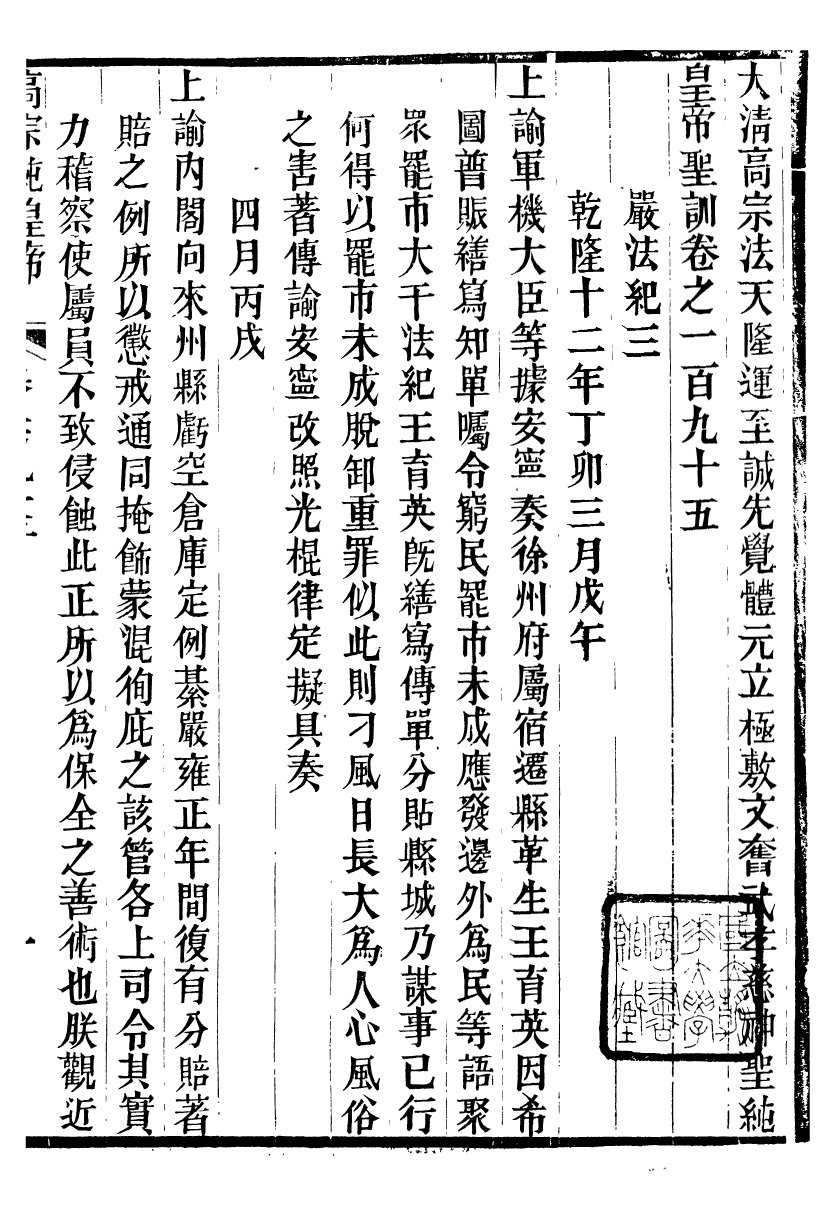 大清高宗法天隆運至誠先覺體元立極敷文奮武孝慈神聖純
皇帝聖訓卷之一百九十五
嚴法紀三
乾隆十二年丁卯三月戊午
上諭軍機大臣等據安寧奏徐州府屬宿遷縣革生王育英因希
圖普賑繕寫知單囑令窮民罷市未成應發邊外為民等語聚
眾罷市大干法紀王育英旣繕寫傳單分貼縣城乃謀事已行
何得以罷市未成脫卸重罪似此則刁風日長大為人心風俗
之害著傳諭安寧改照光棍律定擬具奏
四月丙戌
上諭內閣向來州縣虧空倉庫定例綦嚴雍正年間復有分賠著
賠之例所以懲戒通同掩飾蒙混徇庇之該管各上司令其實
力稽察使屬員不致侵蝕此正所以爲保全之善術也朕觀近
高宗純皇帝
一